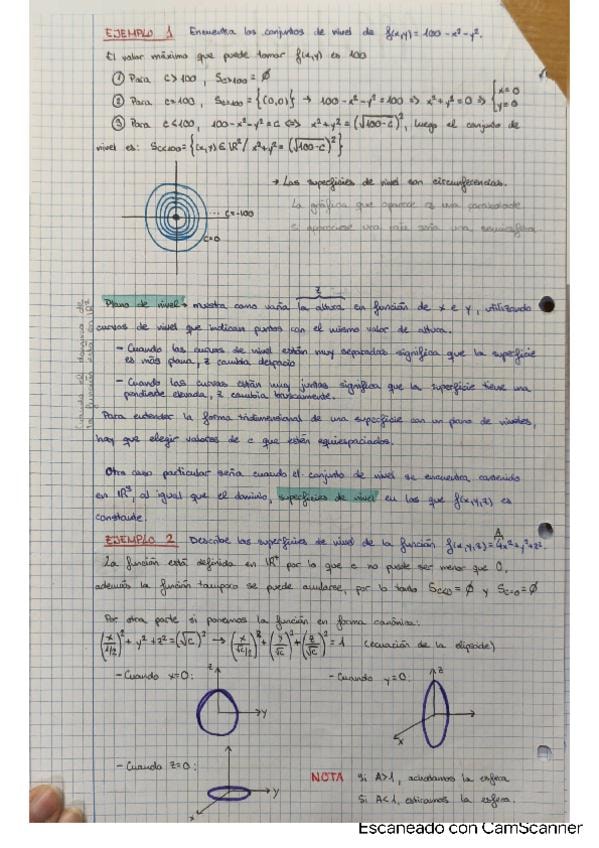 EJEMPLO 1 Encuentra los conjuntos de nivel de f(x,y) = 100 - x² - y².
El valor máximo que puede tomar f(x,y) es 100
① Para c>100, Sc>100 = ∅
② Para c=100, Sc=100 = {(0,0)} → 100-x²-y² = 100 => x²+y² = 0 => {x=0 y=0
③ Para c<100, 100-x²-y² = c <=> x²+y² = (√100-c)², luego el conjunto de
nivel es: Sc<100 = {(x,y) ∈ ℝ² / x²+y² = (√100-c)²}
→ Las superficies de nivel son circunferencias.
La gráfica que aparece es una paraboloide
si apareciese una raíz sería una semiesfera
c=-100
c=0
z
Plano de nivel → muestra como varía la altura en función de x e y, utilizando
curvas de nivel que indican puntos con el mismo valor de altura.
- Cuando las curvas de nivel están muy separadas significa que la superficie
es más plana, z cambia despacio
- Cuando las curvas están muy juntas significa que la superficie tiene una
pendiente elevada, z cambia bruscamente.
Para entender la forma tridimensional de una superficie con un plano de niveles,
hay que elegir valores de c que estén equiespaciados.
Otro caso particular sería cuando el conjunto de nivel se encuentra contenido
en ℝ³, al igual que el dominio, superficies de nivel en las que f(x,y,z) es
constante.
A
EJEMPLO 2 Describe las superficies de nivel de la función f(x,y,z) = 4x²+y²+z².
La función está definida en ℝ⁺ por lo que c no puede ser menor que 0,
además la función tampoco se puede anularse, por lo tanto Sc<0 = ∅ y Sc=0 = ∅
Por otra parte si ponemos la función en forma canónica:
(x/1/2)² + y² + z² = (√c)² → (x/√c/2)² + (y/√c)² + (z/√c)² = 1 (ecuación de la elipsoide)
- Cuando x=0:
z
y
- Cuando y=0:
z
x
- Cuando z=0:
y
x
NOTA Si A>1, achatamos la esfera
Si A<1, estiramos la esfera.
Escaneado con CamScanner